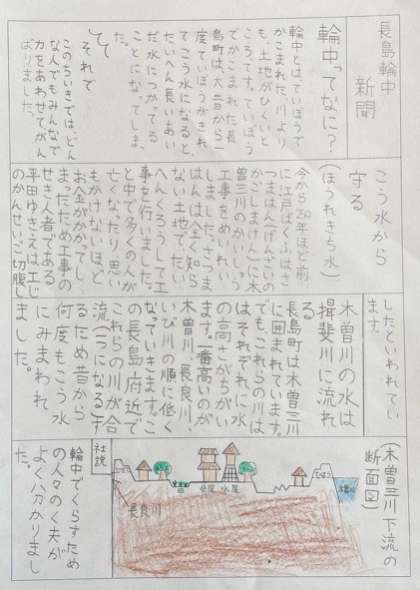 長島輪中
新聞
輪中ってなに？
輪中とはていぼうで
かこまれた、川より
も、土地がひくいと
ころです。ていぼう
でかこまれた長
島町は、大昔から一
度ていぼうがきれ
てこう水になると、
たいへん長いあい
だ水につかってる
ことになってしま
た。
それで
このちいきでは、どん
な人でもみんなで
力をあわせてがん
ばりました。
こう水から
守る
(ほうれきち水)
今から250年ほど前
に江戸ばくふはさ
つまはん(げんざいの
かごしまけん)に木
曽三川のかいしゅう
工事をめいれい
しました。さつま
はんは全く知ら
ない土地でたい
へんくろうして工
事を行いました。
と中で多くの人が
亡くなったり思い
もかけないほど
お金がかかってし
まったため工事の
せき人者である
平田ゆきえは工じ
のかんせいご切腹
したといわれてい
ます。
木曽川の水は
揖斐川に流れ
る
長島町は木曽三川
に囲まれています。
でもこれらの川は
はそれぞれに水
の高さがちがい
ます。一番高いのが
木曽川、長良川、
いび川の順に低く
なていきます。こ
の長島付近で
これらの川が合
流(一つになる)す
るため昔から
何度もこう水
にみまわれ
ました。
(木曽三川下流の
断面図)
水屋
長良川
社説
輪中でくらすため
の人々のく夫が
よく分かりまし
た。